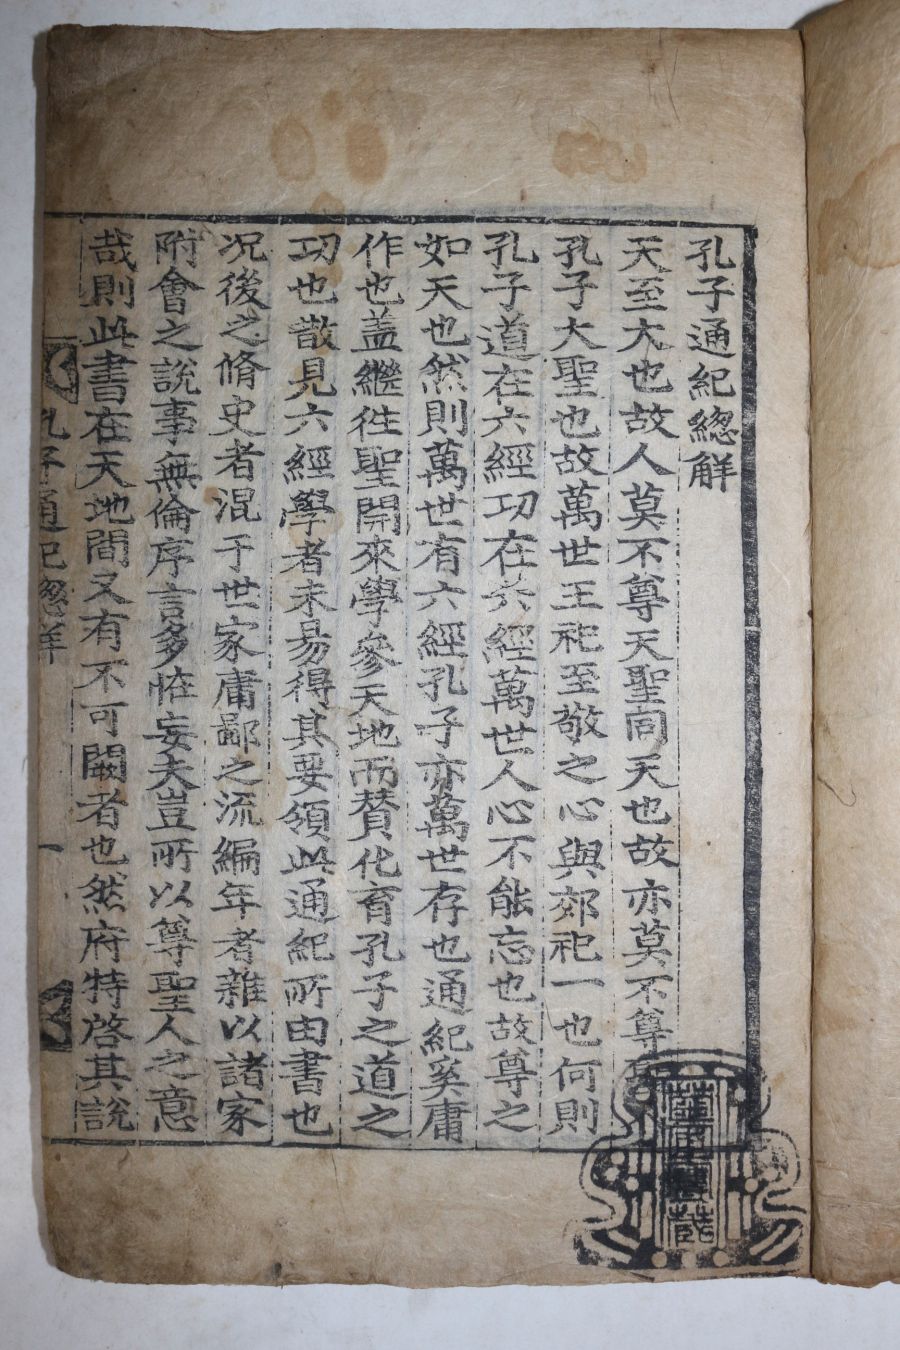 孔子通紀緫解
天至大也故人莫不尊天聖同天也故亦莫不尊聖
孔子大聖也故萬世王祀至敬之心與郊祀一也何則
孔子道在六經功在六經萬世人心不能忘也故尊之
如天也然則萬世有六經孔子亦萬世存也通紀奚庸
作也盖繼徃聖開來學參天地而賛化育孔子之道之
功也散見六經學者未易得其要領此通紀所由書也
况後之脩史者混于世家庸鄙之流編年者雜以諸家
附會之說事無倫序言多恠妄夫豈所以尊聖人之意
哉則此書在天地間又有不可闕者也然府特啓其說
孔子通紀緫解
一